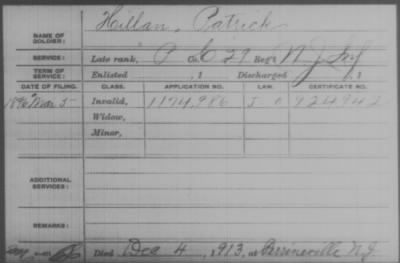 Hillan, Patrick
NAME OF SOLDIER:
SERVICE: Late rank, P Co. C 29 Reg't N J Inf
TERM OF SERVICE: Enlisted , 1 Discharged , 1
DATE OF FILING. CLASS. APPLICATION NO. LAW. CERTIFICATE NO.
1896 Mar 5 Invalid, 1174,986 J 924942
Widow,
Minor,
ADDITIONAL SERVICES:
REMARKS:
Died Dec 4, 1913, at Perrineville N.J.